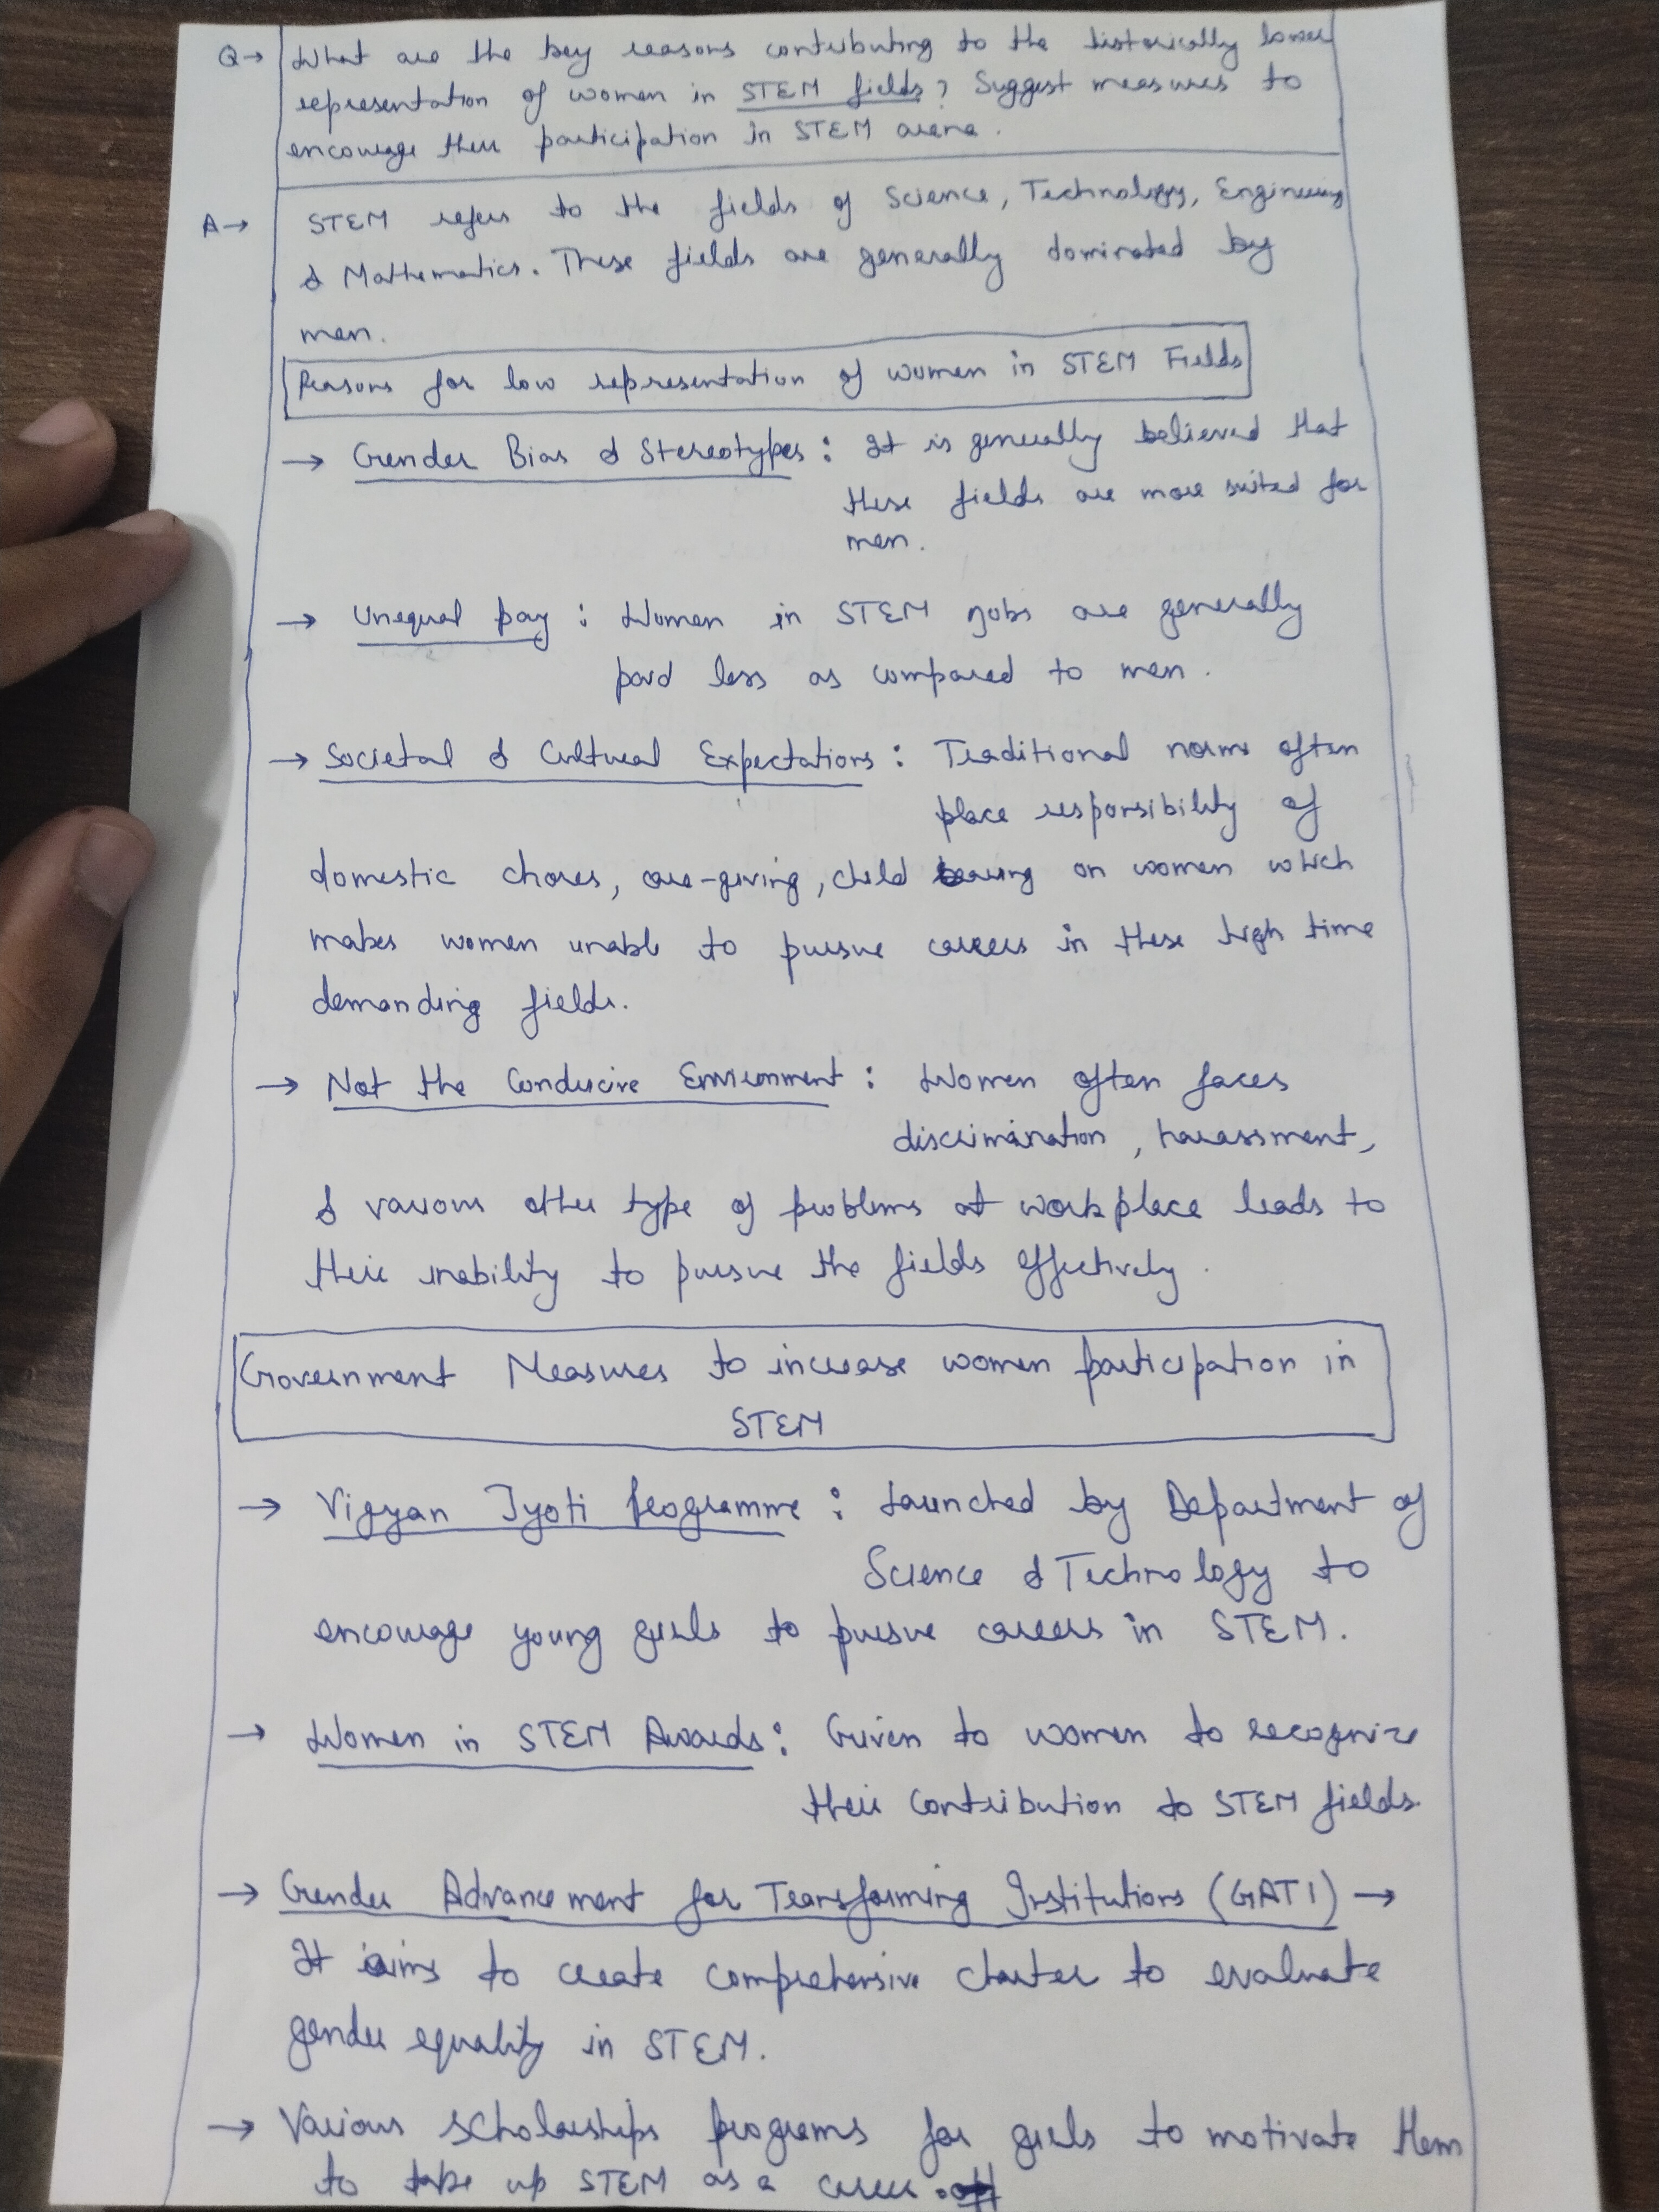 Q→ What are the key reasons contributing to the historically lower
representation of women in STEM fields? Suggest measures to
encourage their participation in STEM arena.
A→ STEM refers to the fields of Science, Technology, Engineering
& Mathematics. These fields are generally dominated by
men.
Reasons for low representation of women in STEM Fields
→ Gender Bias & Stereotypes: It is generally believed that
these fields are more suited for
men.
→ Unequal pay: Women in STEM jobs are generally
paid less as compared to men.
→ Societal & Cultural Expectations: Traditional norms often
place responsibility of
domestic chores, care-giving, child bearing on women which
makes women unable to pursue careers in these high time
demanding fields.
→ Not the Conducive Environment: Women often faces
discrimination, harassment,
& various other type of problems at workplace leads to
their inability to pursue the fields effectively.
Government Measures to increase women participation in
STEM
→ Vigyan Jyoti Programme: Launched by Department of
Science & Technology to
encourage young girls to pursue careers in STEM.
→ Women in STEM Awards: Given to women to recognize
their contribution to STEM fields.
→ Gender Advancement for Transforming Institutions (GATI) →
It aims to create comprehensive charter to evaluate
gender equality in STEM.
→ Various scholarships programs for girls to motivate them
to take up STEM as a career.